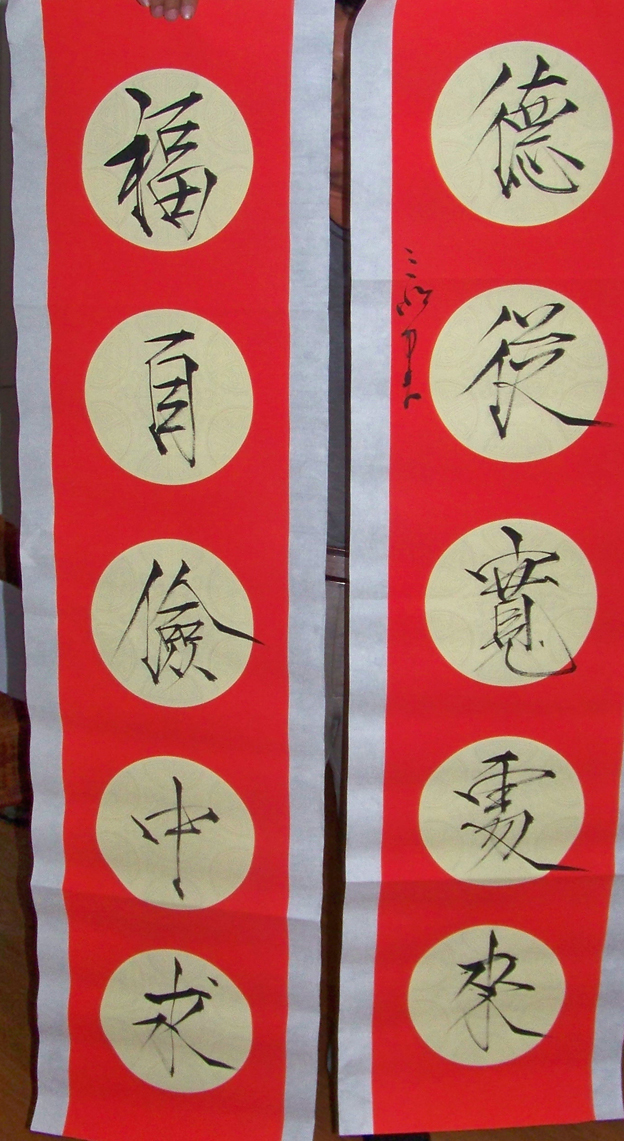 德從寬處來
福自儉中求